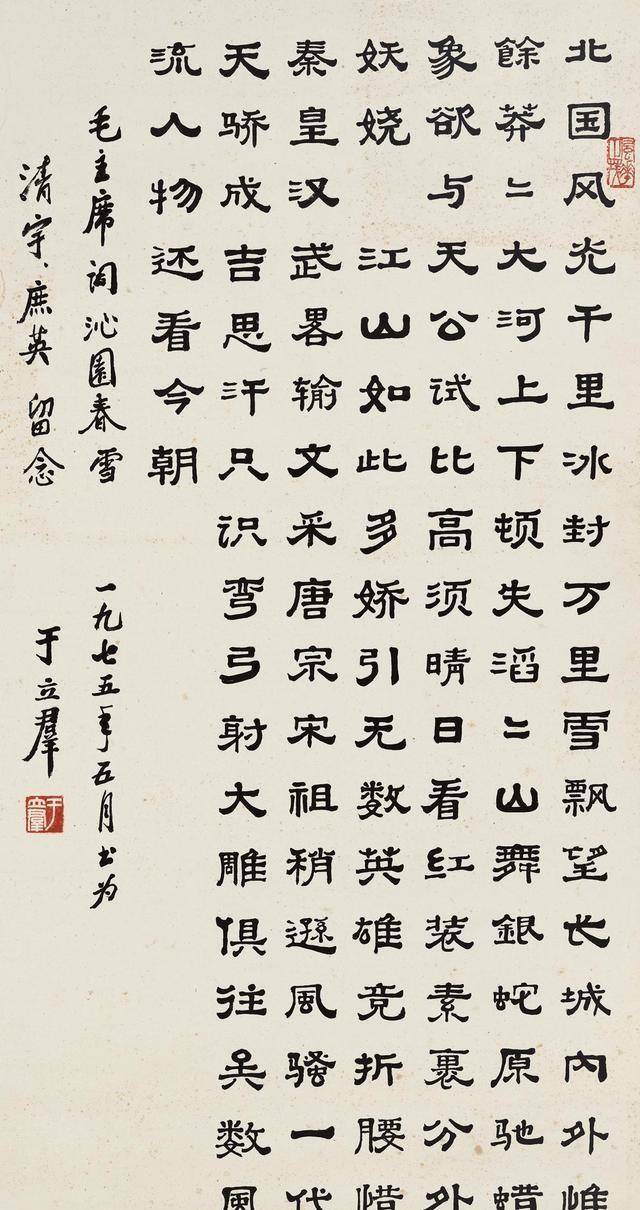 北国风光千里冰封万里雪飘望长城内外惟
餘莽〻大河上下顿失滔〻山舞銀蛇原驰蜡
象欲与天公试比高须晴日看红装素裹分外
妖娆 江山如此多娇引无数英雄竞折腰惜
秦皇汉武畧输文采唐宗宋祖稍遜風骚一代
天骄成吉思汗只识弯弓射大雕俱往矣数風
流人物还看今朝
毛主席词沁園春雪 一九七五年五月书为
清宇、庶英 留念 于立羣
于立羣